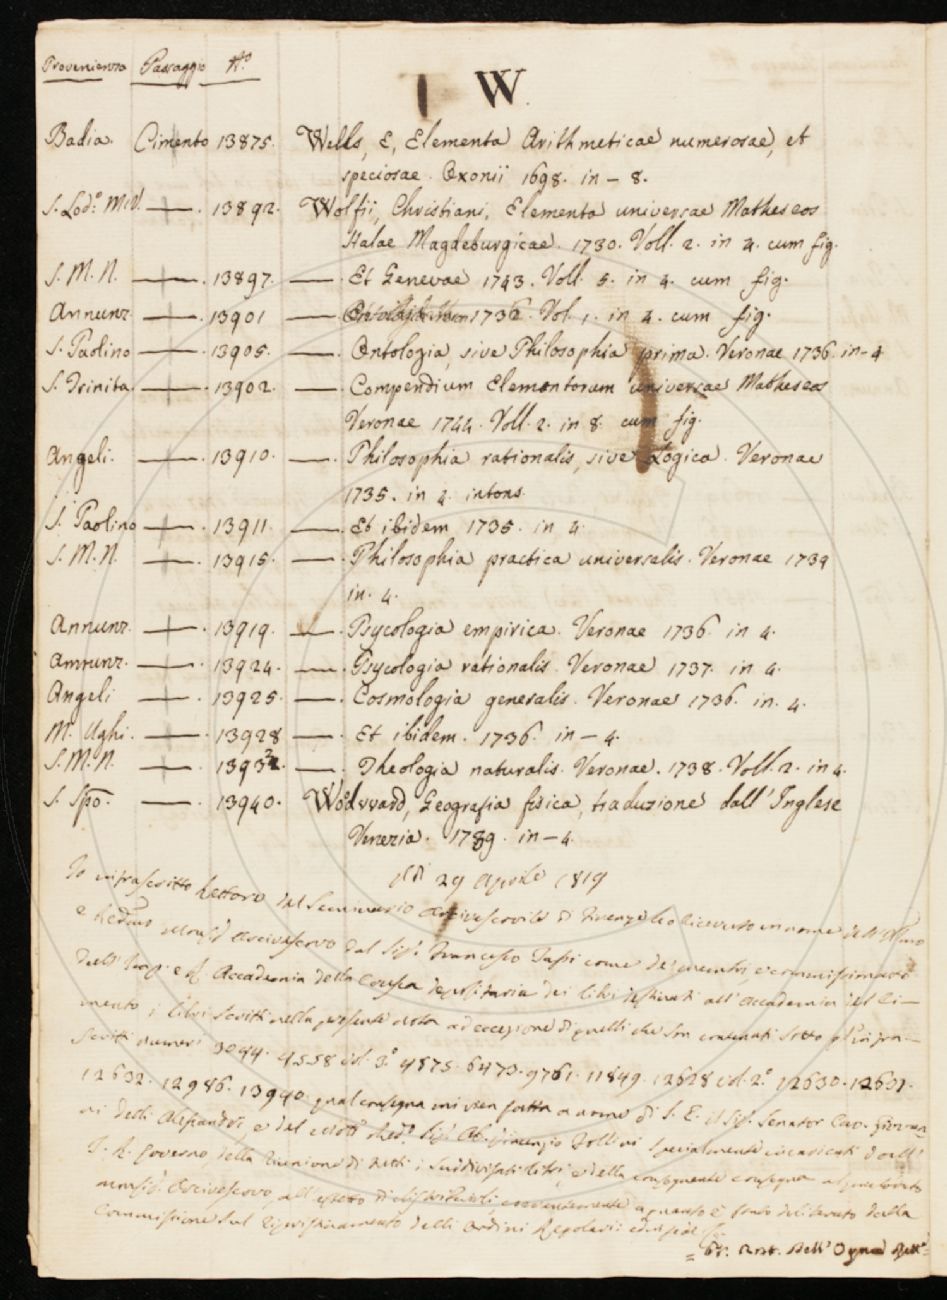 Provenienza Passaggio N.º
W
Badia. Cimento 13875. Wells, E, Elementa Arithmeticae numerosae, et
speciosae. Oxonii 1698. in - 8.
S. Lod.º 13892. Wolfii, Christiani, Elementa universae Matheseos
Halae Magdeburgicae. 1730. Voll. 2. in 4. cum fig.
S. M. N. — 13897. — Et Genevae 1743. Voll. 5. in 4. cum fig.
Annunz. — 13901 — 1736. Vol. 1. in 4. cum fig.
S. Paolino — 13905. — Ontologia, sive Philosophia prima. Veronae 1736. in-4
S. Trinita. — 13902. — Compendium Elementorum universae Matheseos
Veronae 1744. Voll. 2. in 8. cum fig.
Angeli. — 13910. — Philosophia rationalis, sive Logica. Veronae
1735. in 4. intons.
S. Paolino — 13911. — Et ibidem 1735. in 4.
S. M. N. — 13915. — Philosophia practica universalis. Veronae 1739
in. 4.
Annunz. — 13919. — Psycologia empirica. Veronae 1736. in 4.
Annunz. — 13924. — Psycologia rationalis. Veronae 1737. in 4.
Angeli — 13925. — Cosmologia generalis. Veronae 1736. in. 4.
M. Ughi. — 13928 — Et ibidem. 1736. in - 4.
S. M. N. — 13932. — Theologia naturalis. Veronae. 1738. Voll. 2. in 4.
S. Spō. — 13940. Wodvvard, Geografia fisica, traduzione dall' Inglese
Venezia. 1789. in - 4.
29 Aprile 1819
Io infrascritto Rettore del Seminario Arcivescovile di Firenze ho ricevuto in nome dell'
Arcivescovo dal Sig. Francesco come dei e commissionato
dell' Imp. e R. Accademia della Crusca depositaria dei libri destinati all' Accademia del Ci-
mento i libri scritti nella presente nota ad eccezione di quelli che son contenuti sotto gl'infra-
scritti numeri 3094. 4558 vol. 3.º 4875. 6473. 9761. 11849. 12628 vol. 2.º 12630. 12631.
12632. 12986. 13940. qual consegna mi vien fatta a nome di S. E. il Sig. Senator Cav.
degli Alessandri, e del Sig. Ab. Vincenzio Follini specialmente incaricati dall'
I. R. Governo, della riunione di tutti i suddivisati libri, e della conseguente consegna
Arcivescovo, all'effetto di distribuirli, coerentemente a quanto è stato deliberato dalla
Commissione sul ripristinamento delli Ordini Regolari
dell' Ogna Rett.